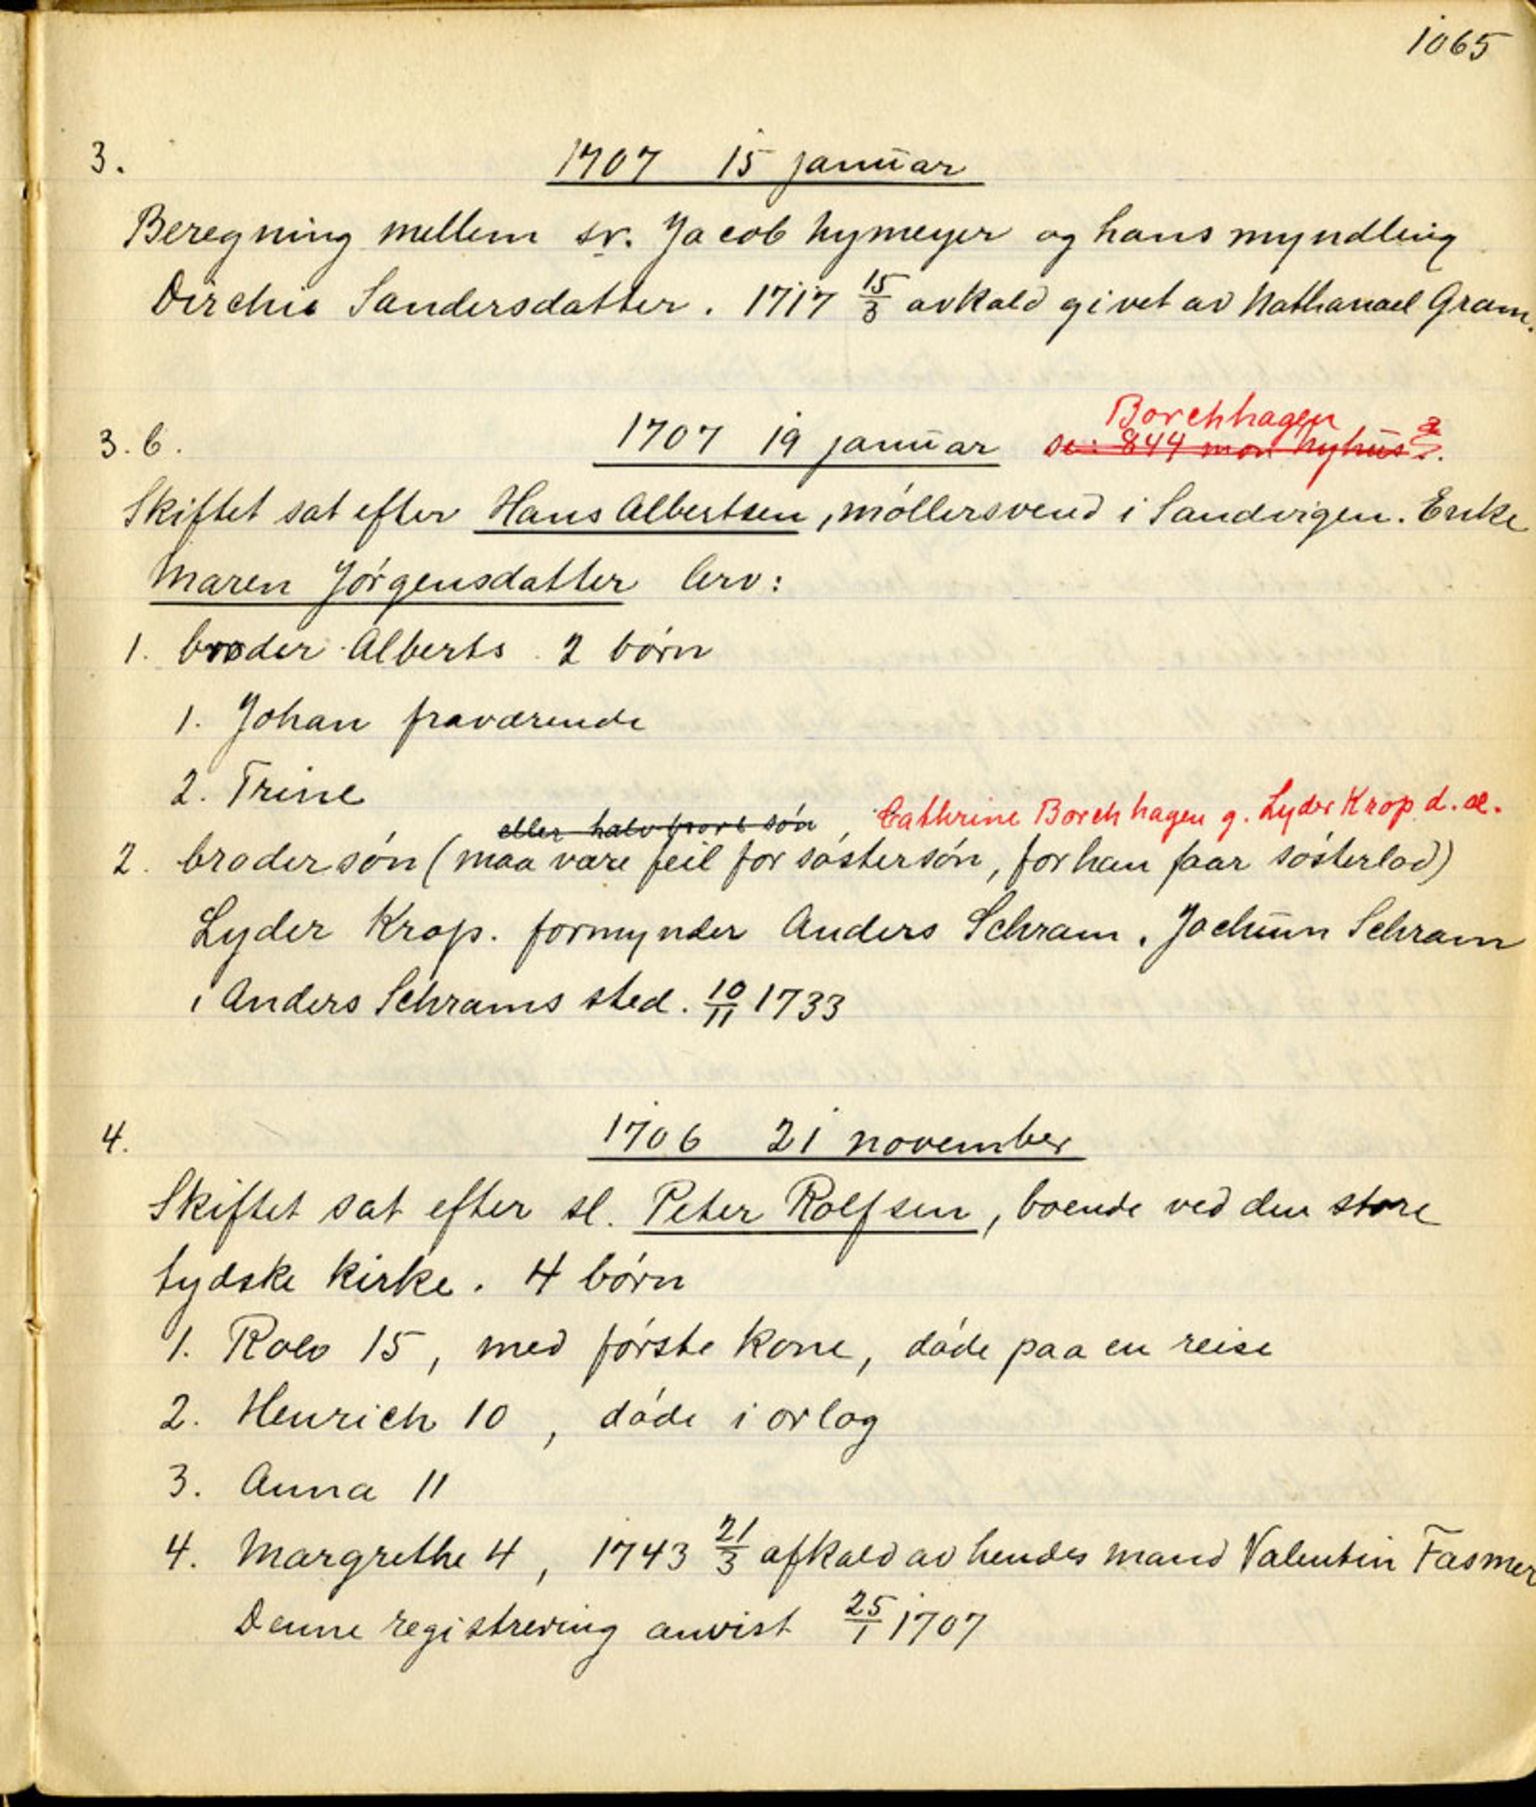 1065
3.
1707 15 januar
Beregning mellem sr. Jacob Nymeyer og hans myndling
Dirchie Sandersdatter. 1717 15/3 avkald givet av Nathanael Gram.
Borchhagen
3.b.
1707 19 januar se: 844 mon Nyhus?
Skiftet sat efter Hans Albertsen, møllersvend i Sandvigen. Enke
Maren Jörgensdatter Arv:
1. broder Alberts 2 börn
1. Johan fraværende
2. Trine
eller halvbrors sön, Cathrine Borchhagen g. Lyder Krop d. æ.
2. brodersön (maa være feil for söstersön, for han faar sösterlod)
Lyder Krop. formynder Anders Schram. Jochum Schram
i Anders Schrams sted. 10/11 1733
4.
1706 21 november
Skiftet sat efter sl. Peter Rolfsen, boende ved den store
tydske kirke. 4 börn
1. Rolv 15, med förste kone, döde paa en reise
2. Henrich 10, döde i orlog
3. Anna 11
4. Margrethe 4, 1743 21/3 afkald av hendes mand Valentin Fasmer
Denne registrering anvist 25/1 1707